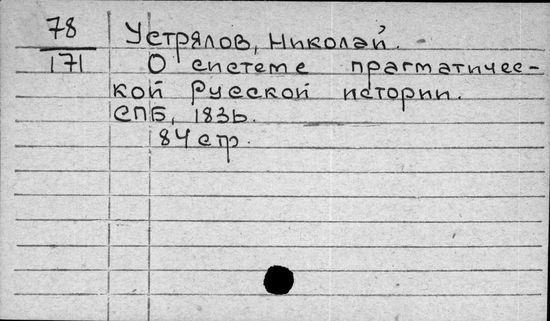 78
171
Устрялов, Николай.
О системе прагматичес-
кой Русской истории.
СПБ, 1836.
84 стр.